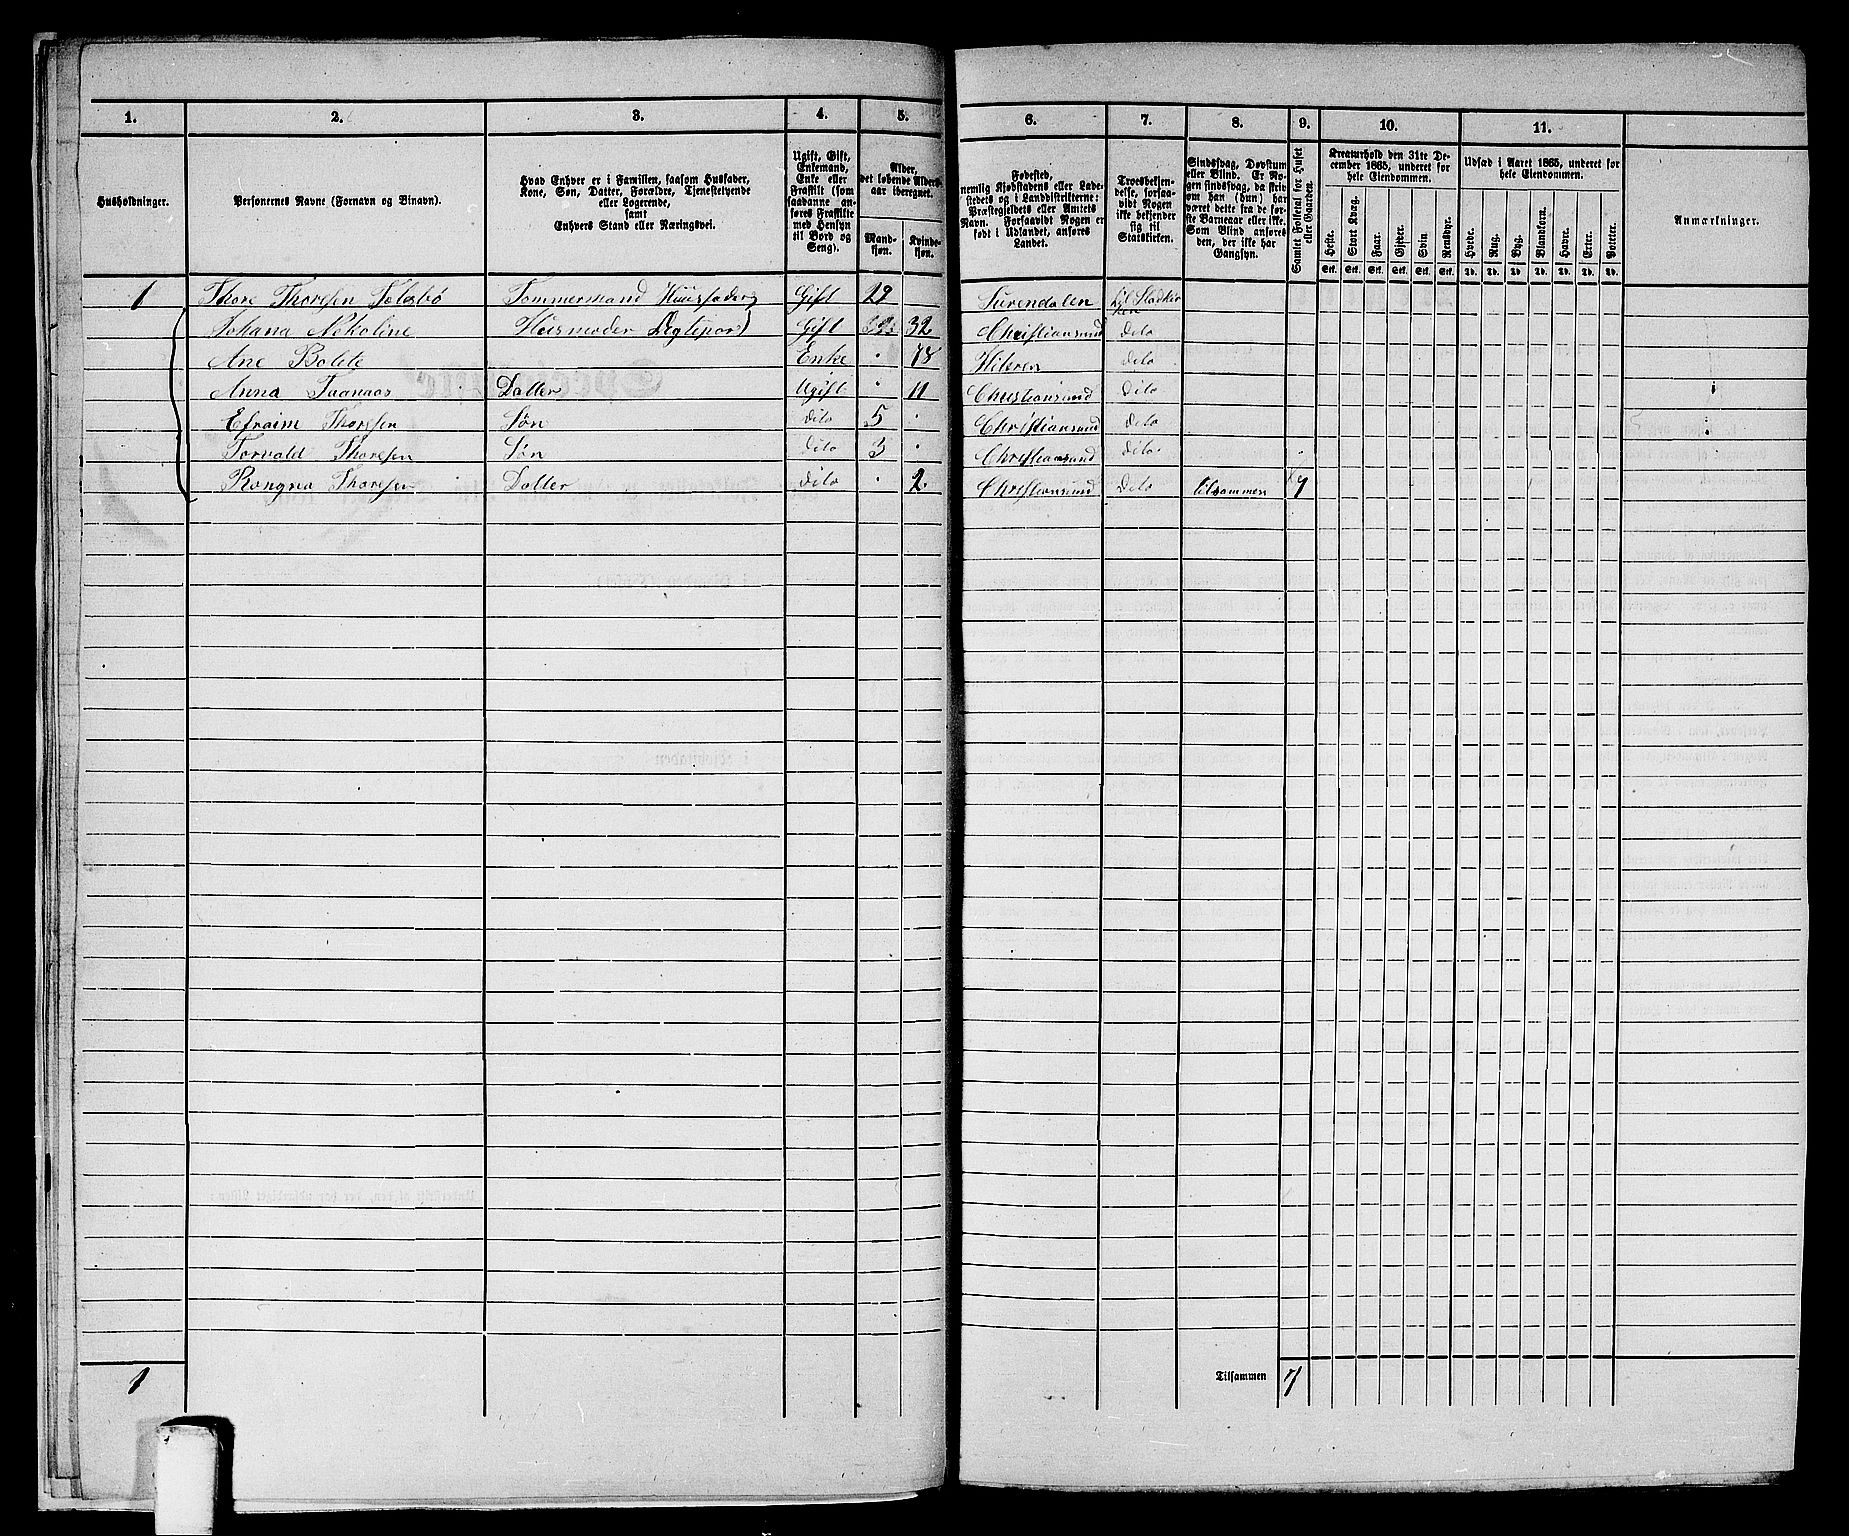 1. 2. 3. 4. 5. 6. 7. 8. 9. 10. 11.
Husholdninger.
Personernes Navne (Fornavn og Binavn).
Hvad Enhver er i Familien, saasom Husfader,
Kone, Søn, Datter, Forældre, Tjenestetyende
eller Logerende,
samt
Enhvers Stand eller Næringsvei.
Ugift, Gift,
Enkemand,
Enke eller
Fraskilt (som
saadanne an-
føres Fraskilte
med Hensyn
til Bord og
Seng).
Alder,
det løbende Alders-
aar iberegnet.
Mand-
kjøn.
Kvinde-
kjøn.
Fødested,
nemlig Kjøbstadens eller Lade-
stedets og i Landdistrikterne:
Præstegjeldets eller Amtets
Navn. Forsaavidt Nogen er
født i Udlandet, anføres
Landet.
Troesbekjen-
delse, forsaa-
vidt Nogen
ikke bekjender
sig til
Statskirken.
Sindssvag, Døvstum
eller Blind. Er No-
gen sindssvag, da skriv
om han (hun) har
været dette fra de før-
ste Barneaar eller ikke.
Som Blind anføres
den, der ikke har
Gangsyn.
Samlet Folketal for Huset
eller Gaarden.
Kreaturhold den 31te De-
cember 1865, underet for
hele Eiendommen.
Heste. Stort Kvæg. Faar. Gjeder. Svin. Rensdyr.
Stk. Stk. Stk. Stk. Stk. Stk.
Udsæd i Aaret 1865, underet for
hele Eiendommen.
Hvede. Rug. Byg. Blandkorn. Havre. Erter. Poteter.
Td. Td. Td. Td. Td. Td. Td.
Anmærkninger.
1 Thore Thoresen Tømmermand Huusfader Gift 29 Surendalen
Johana Nekoline Huusmoder Gift 32 Christiansund dito
Ane Enke 78 Hiteren dito
Anna Datter Ugift 11 Christiansund dito
Efraim Thoresen Søn dito 5 Christiansund dito
Torvald Thoresen Søn dito 3 Christiansund dito
Rangna Thoresen Datter dito 2 Christiansund dito tilsammen 7
1 Tilsammen 7